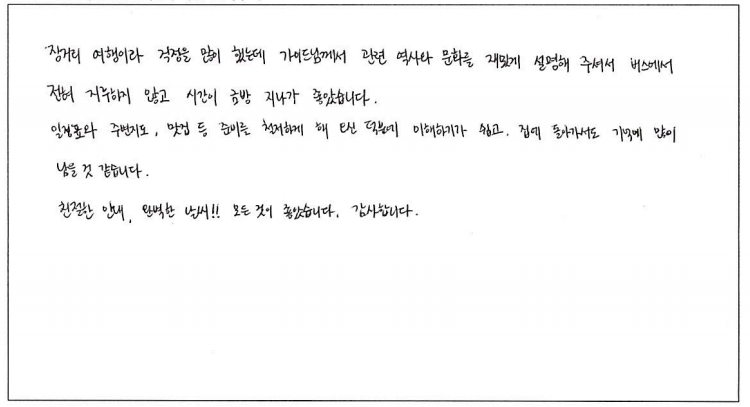 장거리 여행이라 걱정을 많이 했는데 가이드님께서 관련 역사와 문화를 재밌게 설명해 주셔서 버스에서
전혀 지루하지 않고 시간이 금방 지나가 좋았습니다.
일정표와 주변지도, 맛집 등 준비를 철저하게 해 오신 덕분에 이해하기가 쉽고, 집에 돌아가서도 기억에 많이
남을 것 같습니다.
친절한 안내, 완벽한 날씨!! 모든 것이 좋았습니다. 감사합니다.